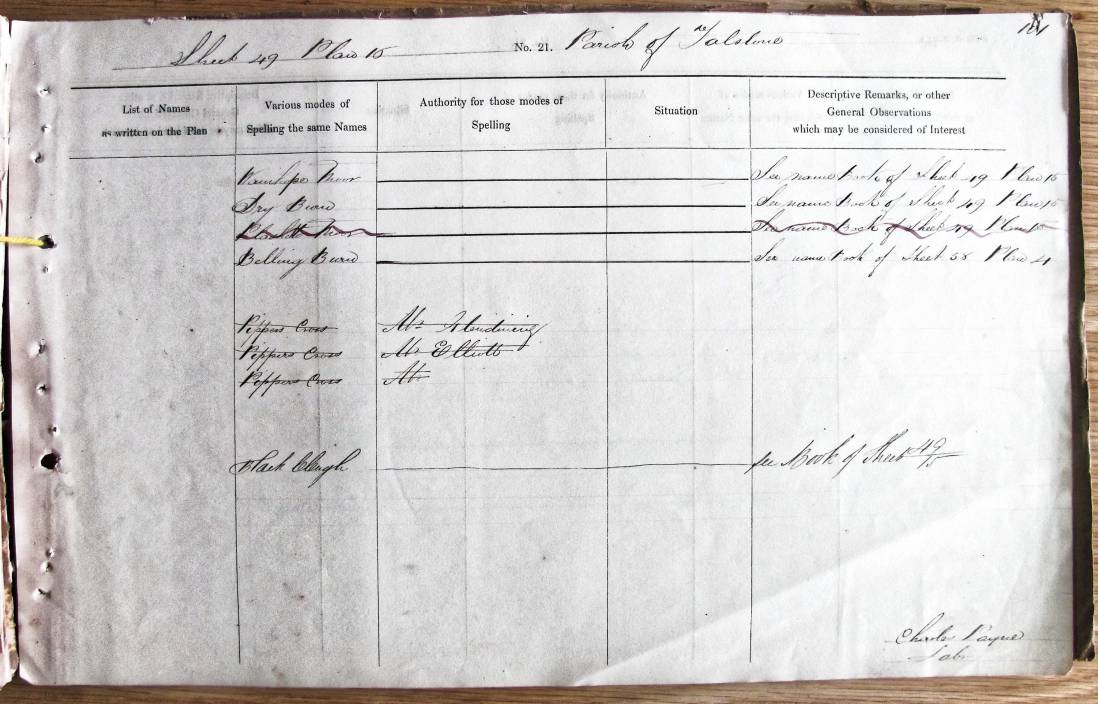 Sheet 49 Plan 15 No. 21. Parish of Falstone
List of Names
as written on the Plan
Various modes of
Spelling the same Names
Authority for those modes of
Spelling
Situation
Descriptive Remarks, or other
General Observations
which may be considered of Interest
Moor See name Book of Sheet 49 Plan 15
Dry Burn See name Book of Sheet 49 Plan 15
Moor See name Book of Sheet 49 Plan 15
Belling Burn See name Book of Sheet 58 Plan 4
Peppers Cross Mr.
Peppers Cross Mr. Elliott
Peppers Cross Mr.
Black Cleugh see Book of Sheet 49
Charles Payne